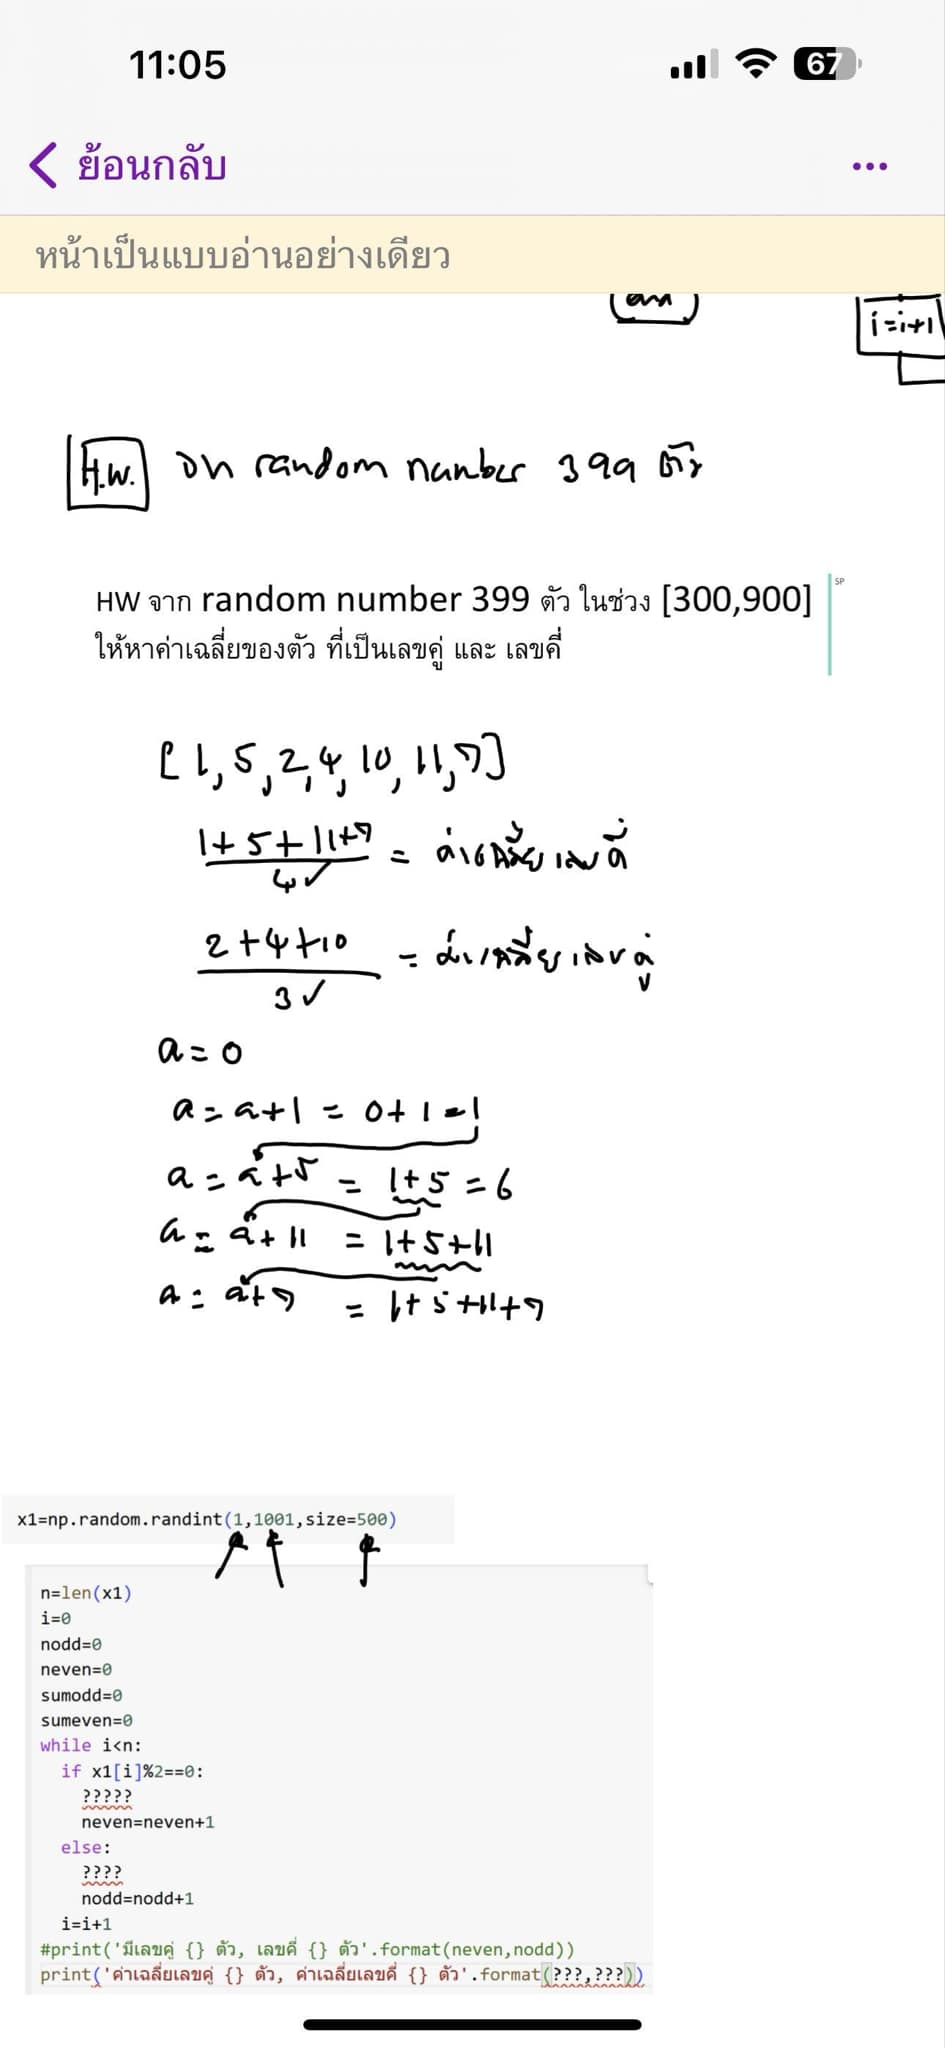 11:05
67
ย้อนกลับ
...
หน้าเป็นแบบอ่านอย่างเดียว
i=i+1
H.W. จาก random number 399 ตัว
HW จาก random number 399 ตัว ในช่วง [300,900]
SP
ให้หาค่าเฉลี่ยของตัว ที่เป็นเลขคู่ และ เลขคี่
[1,5,2,4,10,11,7]
1+5+11+7
4 = ค่าเฉลี่ยเลขคี่
2+4+10
3 = ค่าเฉลี่ยเลขคู่
a=0
a=a+1 = 0+1=1
a=a+5 = 1+5=6
a=a+11 = 1+5+11
a=a+7 = 1+5+11+7
x1=np.random.randint(1,1001,size=500)
n=len(x1)
i=0
nodd=0
neven=0
sumodd=0
sumeven=0
while i<n:
if x1[i]%2==0:
?????
neven=neven+1
else:
????
nodd=nodd+1
i=i+1
#print('มีเลขคู่ {} ตัว, เลขคี่ {} ตัว'.format(neven,nodd))
print('ค่าเฉลี่ยเลขคู่ {} ตัว, ค่าเฉลี่ยเลขคี่ {} ตัว'.format(???,???))